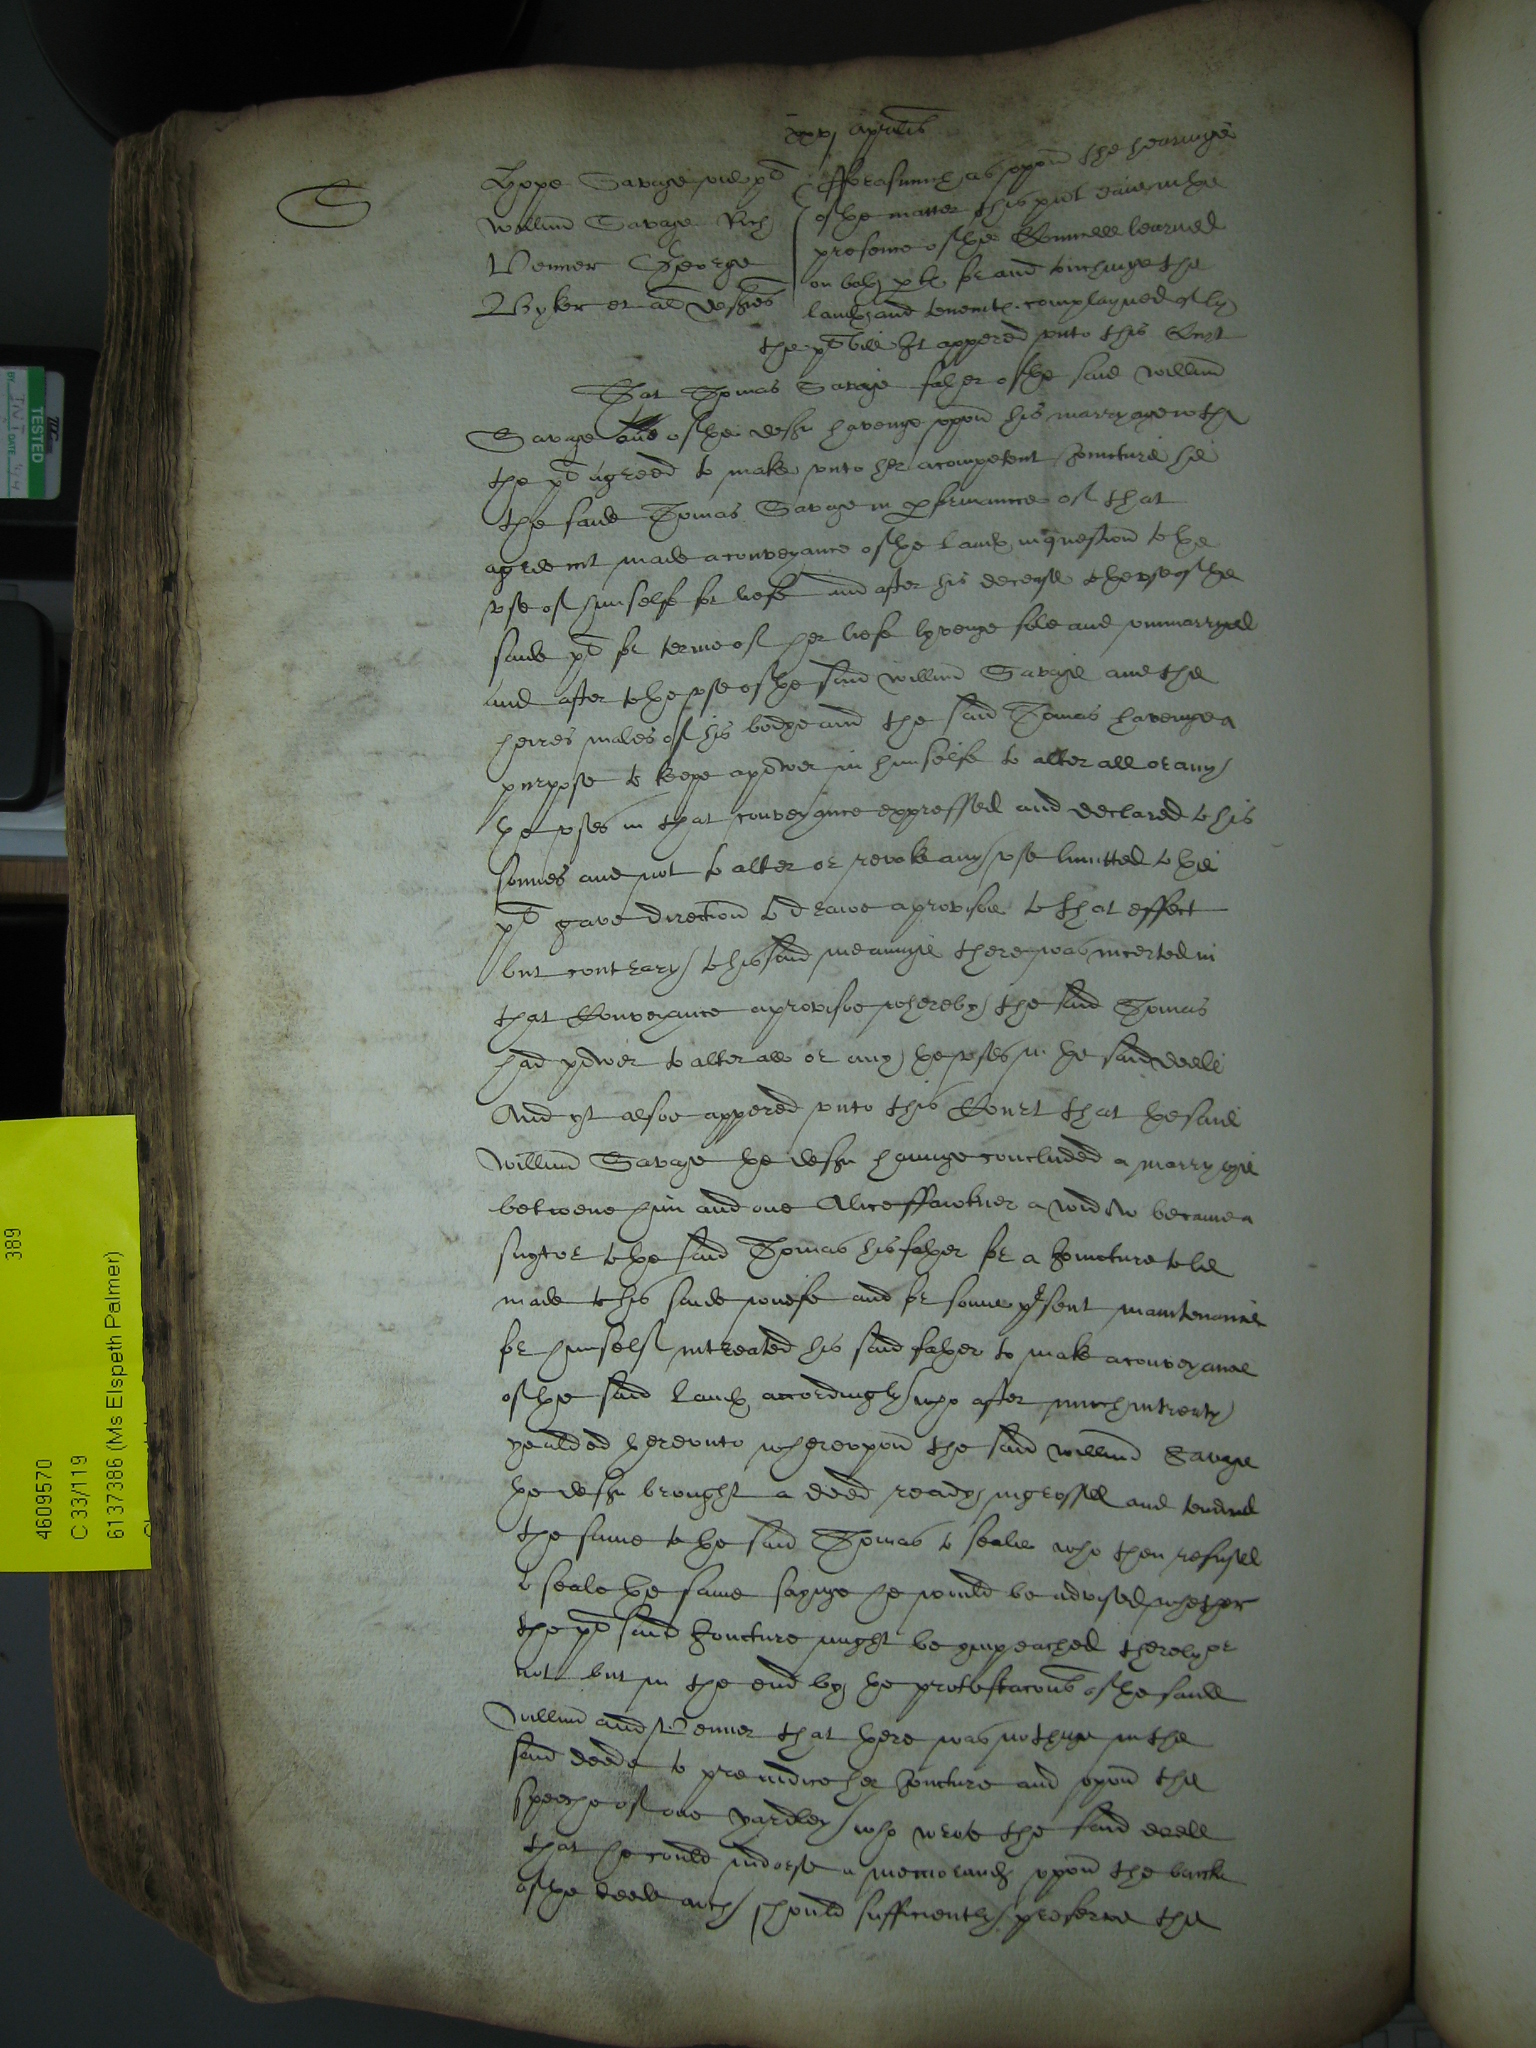 xxvj aprilis
S
Hope Savage vid plt
Willm̃ Savage Rich
Venner George
Ryker et al defend̃tes
fforasmuch as upon the hearinge
of the matter this pñt daie in the
presence of the Counsell learned
on both ptes for and touchinge the
landes and tenemtes complayned of by
the plt bill It appered unto this Court
That Thomas Savage father of the said Willm̃
Savage one of the deftes havenge upon his marryage wth
the plt agreed to make unto her a competent Joincture he
the saide Thomas Savage in pformance of that
agreemt made a conveyance of the landes in question to the
use of himselfe for liefe and after his decease to the use of the
saide plt for terme of her liefe lyvenge sole and unmarryed
and after to the use of the said Willm̃ Savage and the
heires males of his bodye and the said Thomas havenge a
purpose to keepe a power in himselfe to alter all or any
the uses in that conveyance expressed and declared to his
sonnes and not to alter or revoke any use limitted to the
plt gave direction to drawe a provisoe to that effect
but contrary to his said meaninge there was incerted in
that Conveyance a provisoe whereby the said Thomas
had power to alter all or any the uses in the said deede
And yt alsoe appered unto this Court that the said
Willm̃ Savage the deft havinge concluded a marryage
betwene him and one Alice ffawkner a widow became a
suytor to the said Thomas his father for a Joincture to be
made to his saide wiefe and for some pñsent maintenance
for himself intreated his said father to make a conveyance
of the said landes accordingly who after much intreaty
yealded thereunto whereupon the said Willm̃ Savage
the deft brought a deed ready ingrossed and tendred
the same to the said Thomas to seale who then refused
to seale the same sayinge he would be advised whether
the plt said Joincture might be ympeached thereby or
not but in the end by the protestacons of the saide
Willm̃ and Venner that there was nothinge in the
said deede to preiudice her Joincture and upon the
speeche of one Yardley who wrote the said deede
that he could indorse a memorand upon the backe
of the deede wch should sufficiently preserve the
TESTED
BY INIT DATE
389
4609570
C 33/119
6137386 (Ms Elspeth Palmer)